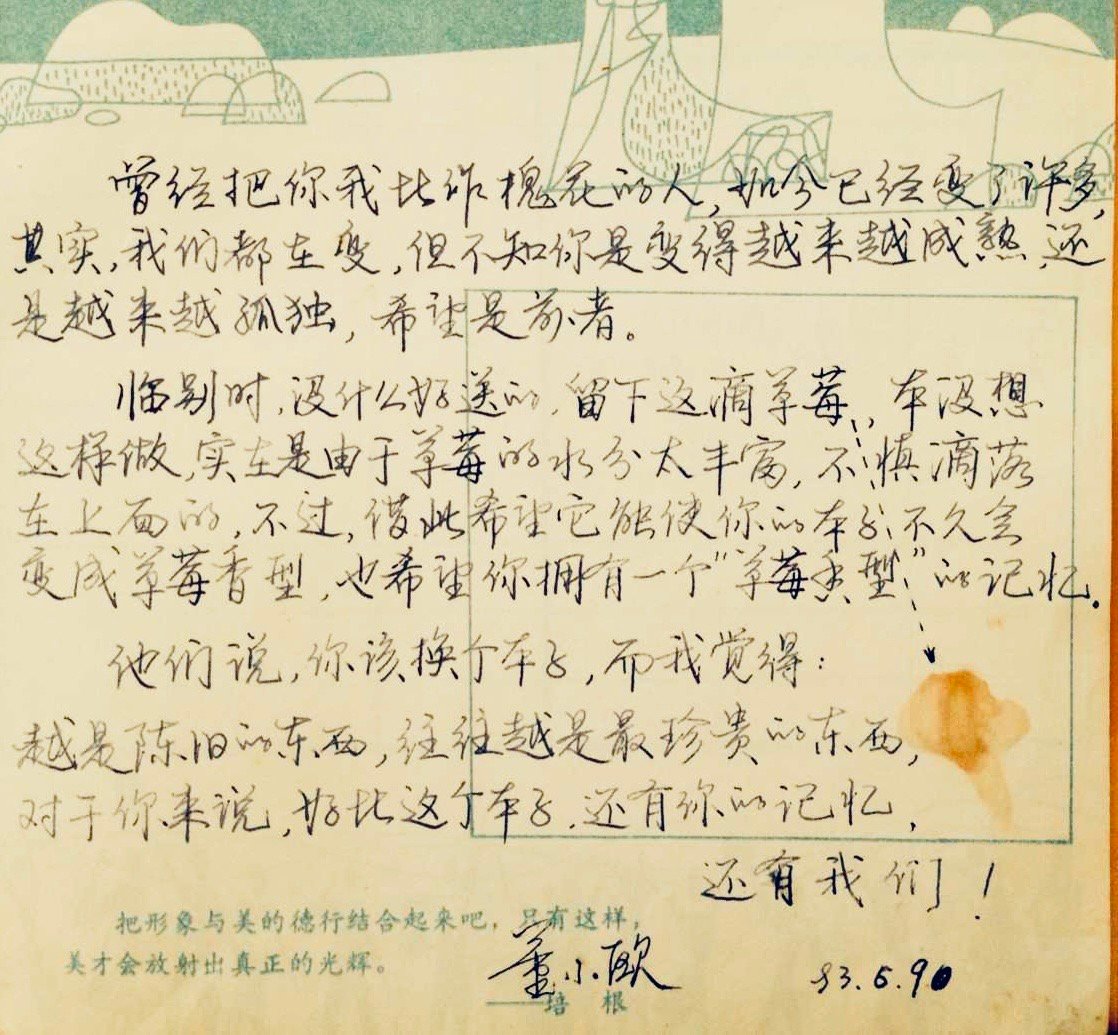 曾经把你我比作槐花的人,如今已经变了许多,
其实,我们都在变,但不知你是变得越来越成熟,还
是越来越孤独,希望是前者。
临别时,没什么好送的,留下这滴草莓,本没想
这样做,实在是由于草莓的水分太丰富,不慎滴落
在上面的,不过,借此希望它能使你的本子不久会
变成草莓香型,也希望你拥有一个"草莓香型"的记忆.
他们说,你该换个本子,而我觉得:
越是陈旧的东西,往往越是最珍贵的东西,
对于你来说,好比这个本子,还有你的记忆,
还有我们!
把形象与美的德行结合起来吧,只有这样,
美才会放射出真正的光辉。
——培 根
董小欧 93.6.90